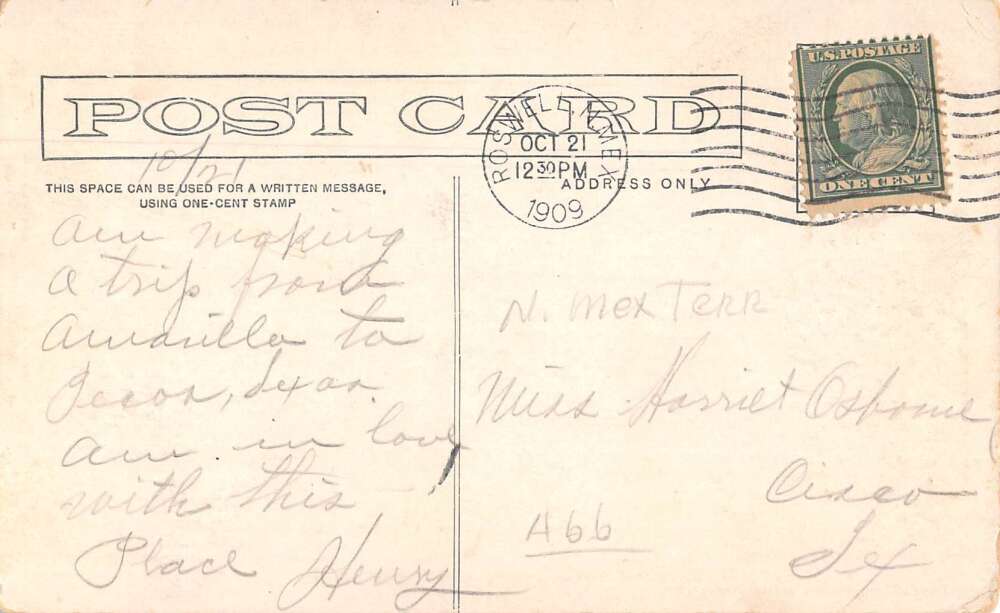 POST CARD
ROSWELL, N. MEX
OCT 21
12 30 PM
1909
U.S. POSTAGE
ONE CENT
10/21
THIS SPACE CAN BE USED FOR A WRITTEN MESSAGE,
USING ONE-CENT STAMP
ADDRESS ONLY
Am making
a trip from
Amarillo to
Pecos, Texas.
Am in love
with this - !
Place Henry
N. Mex Terr
Miss Harriet Osborne
Cisco
Tex
A66